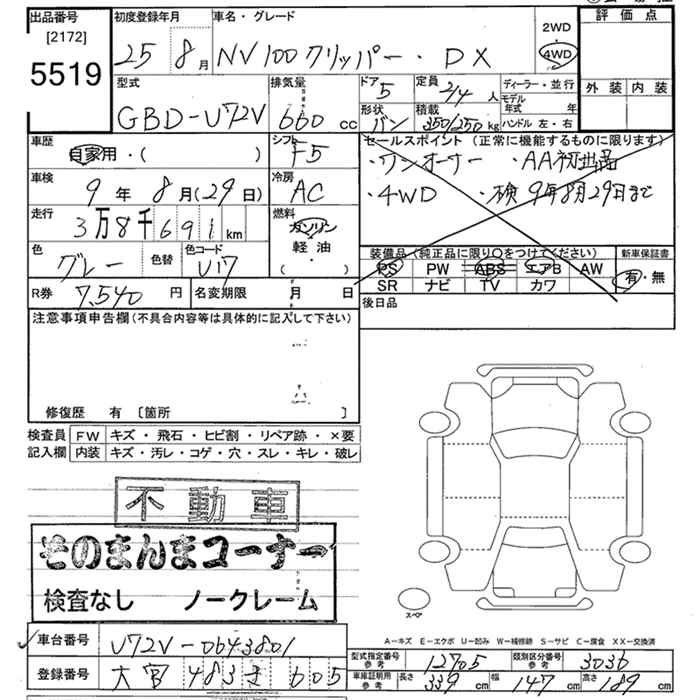 出品番号 初度登録年月 車名・グレード 評価点
[2172] 2WD
5519 25 8月 NV100クリッパー・DX 4WD
型式 排気量 ドア 定員 ディーラー・並行 外装 内装
5 2/4人 モデル年式 年
GBD-U72V 660cc 形状 積載 ハンドル 左・右
バン 350/250kg
車歴 シフト セールスポイント(正常に機能するものに限ります)
自家用・( ) F5 ・ワンオーナー ・AA初出品
車検 冷房
9年8月(29日) AC ・4WD ・検 9年8月29日まで
走行 燃料
3万8千691km ガソリン
軽油 装備品(純正品に限り○をつけてください) 新車保証書
色 色替 色コード ・( ) PS PW ABS エアB AW 有・無
グレー U17 SR ナビ TV カワ
R券 7,540円 名変期限 月 日 後日品
注意事項申告欄(不具合内容等は具体的に記入して下さい)
修復歴 有 [箇所 ]
検査員 FW キズ・飛石・ヒビ割・リペア跡・×要
記入欄 内装 キズ・汚レ・コゲ・穴・スレ・キレ・破レ
不動車
そのまんまコーナー
検査なし ノークレーム
スペア
A-キズ E-エクボ U-凹み W-補修跡 S-サビ C-腐食 XX-交換済
車台番号 U72V-0643801 型式指定番号 参考 12705 類別区分番号 参考 3036
登録番号 大宮 483 605 車庫証明用 参考 長さ 339cm 幅 147cm 高さ 189cm